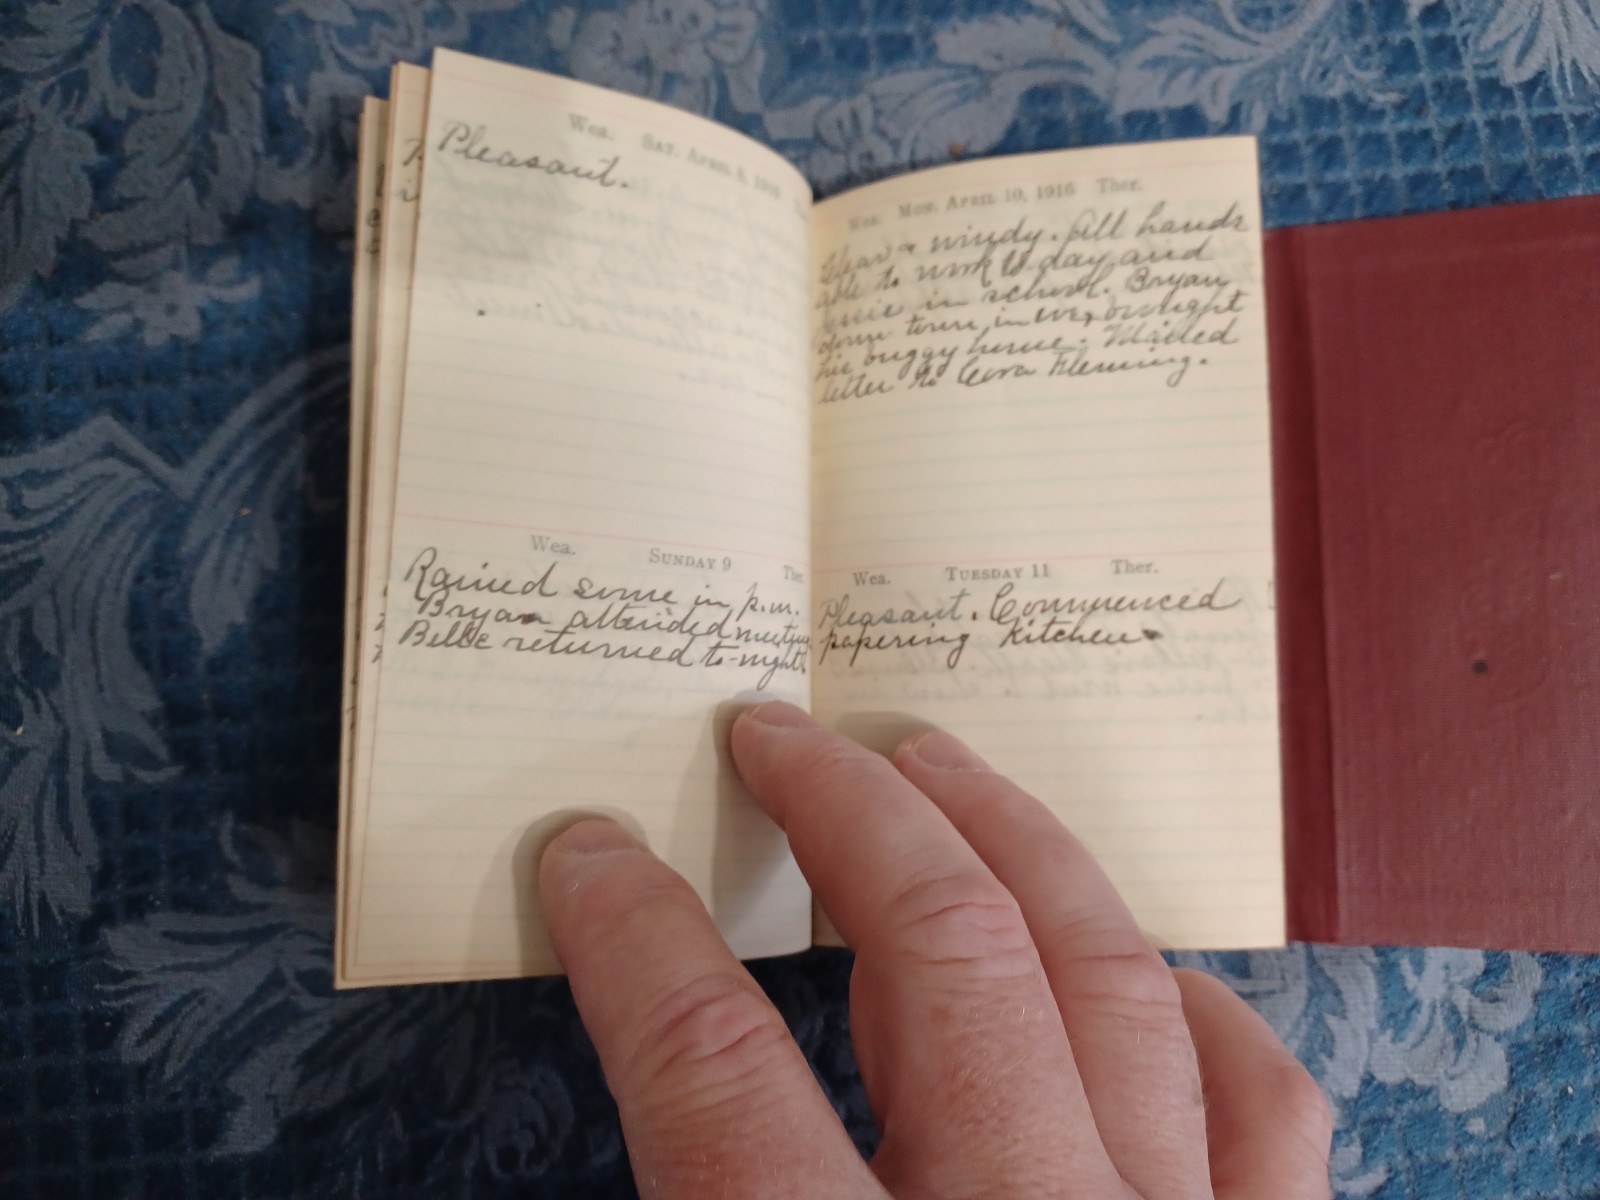 Wea. SAT. APRIL 8, 1916
Pleasant.
Wea. SUNDAY 9 Ther.
Rained some in p.m.
Bryan attended meeting
Belle returned to-night.
Wea. MON. APRIL 10, 1916 Ther.
Clear & windy. All hands
able to work to day and
Jessie in school. Bryan
down town in eve, brought
his buggy home. Mailed
letter to Cora Fleming.
Wea. TUESDAY 11 Ther.
Pleasant. Commenced
papering kitchen.